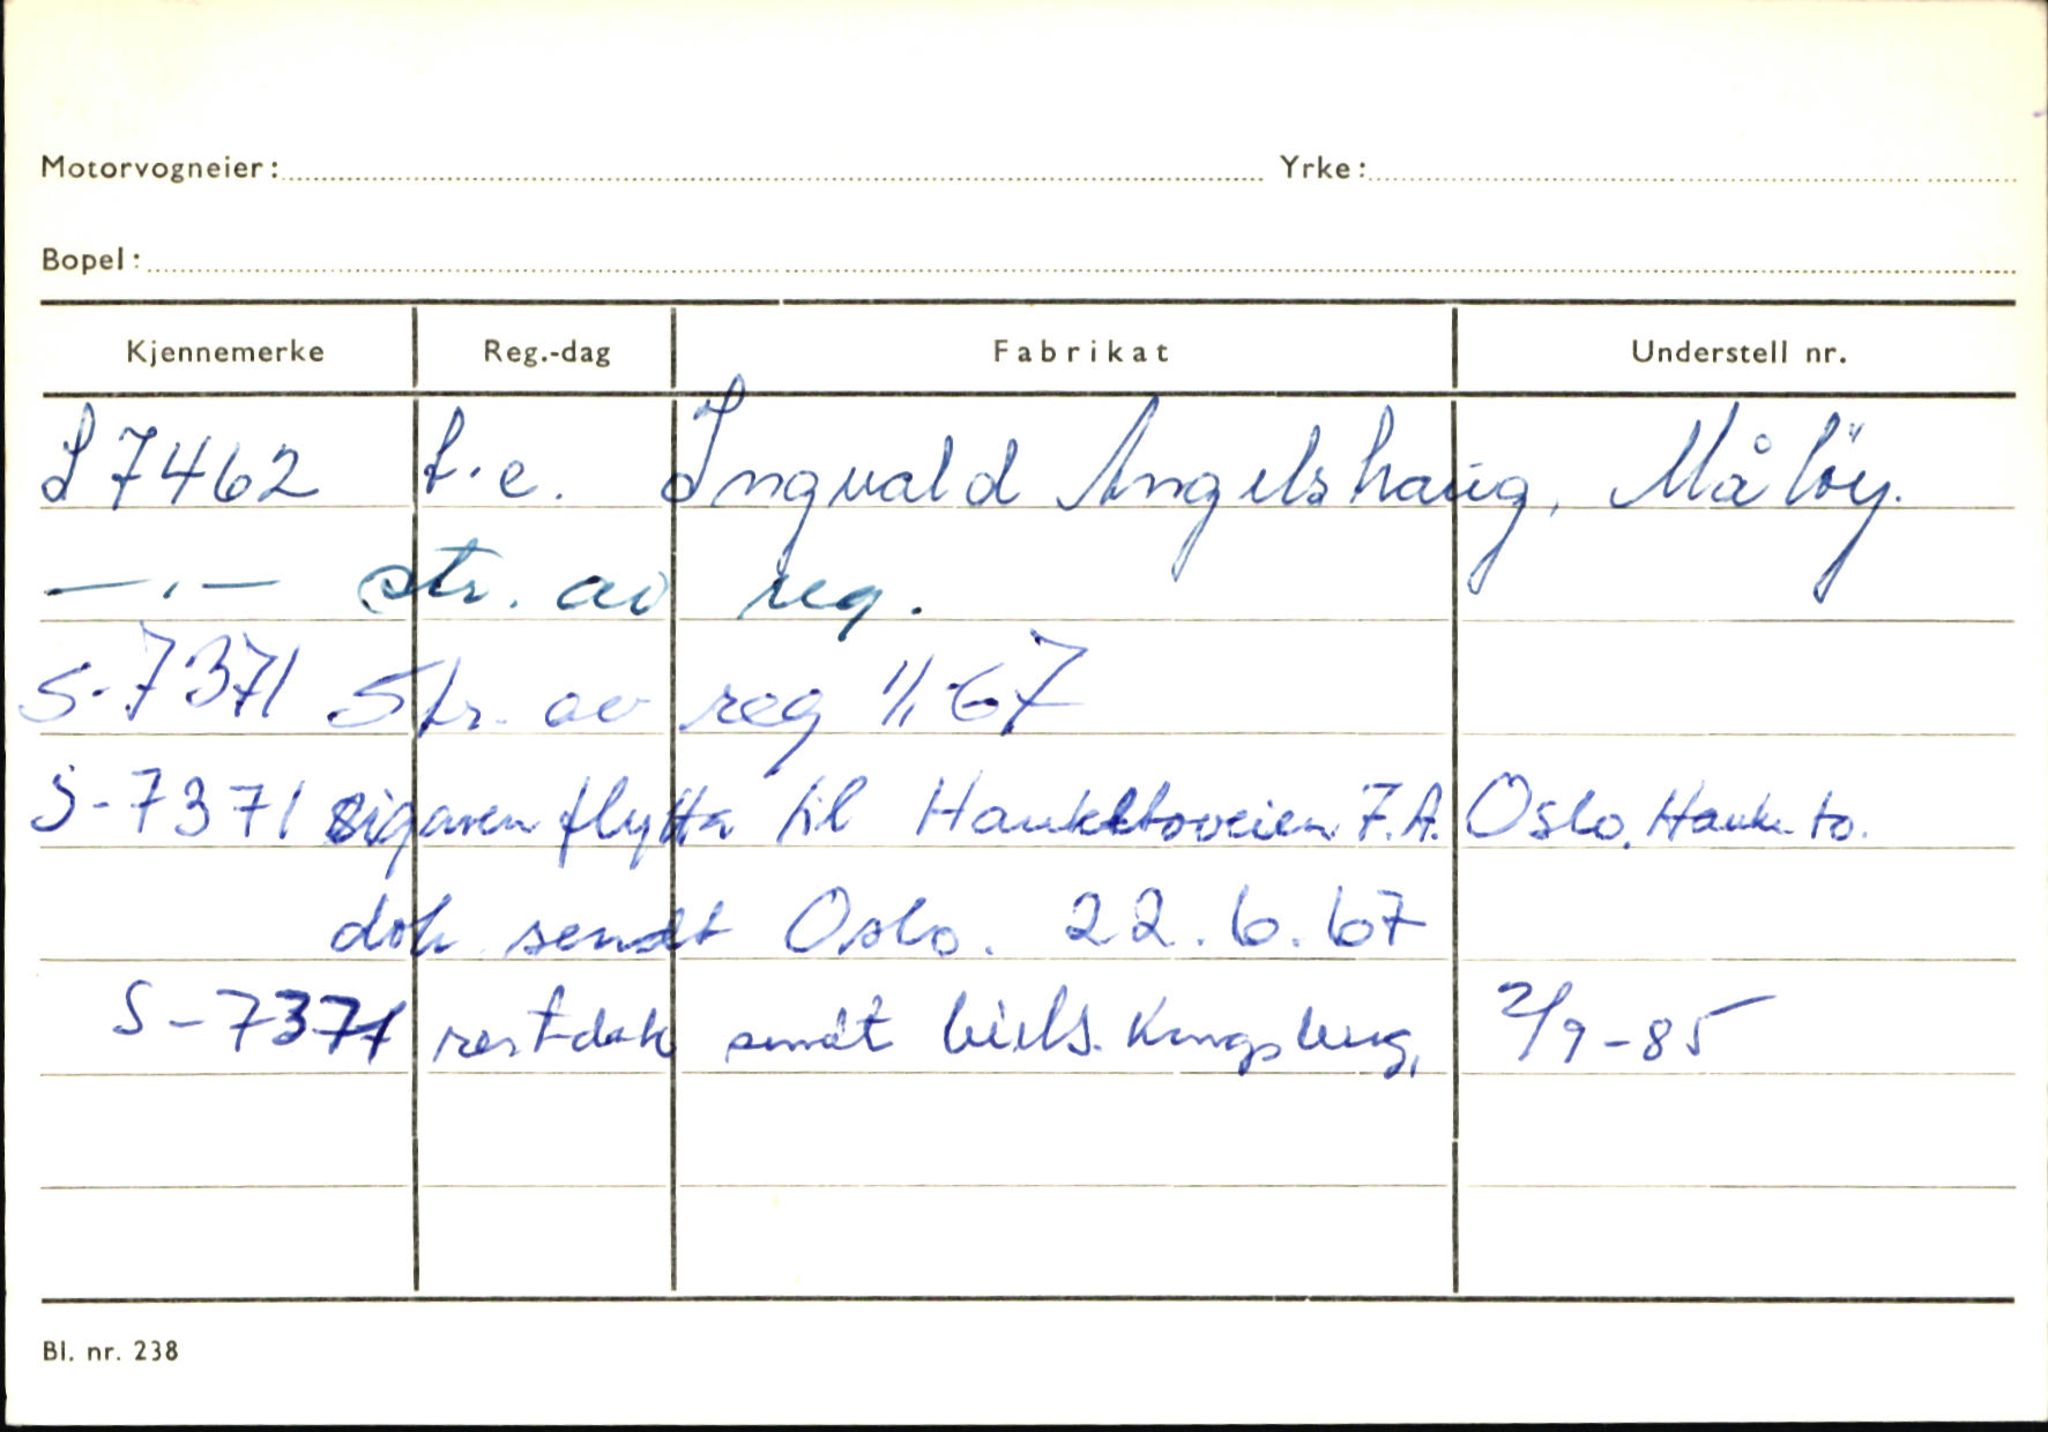 Motorvogneier: Yrke:
Bopel:
Kjennemerke Reg.-dag Fabrikat Understell nr.
S 7462 t.e. Ingvald Angelshaug, Måløy.
—"— str. av reg.
S-7371 Str. av reg 1/1 67
S-7371 eigaren flytta til Hauketoveien 7.A. Oslo. Hauketo.
dok sendt Oslo. 22.6.67
S-7371 restdok sendt Kongsberg, 2/9-85
Bl. nr. 238